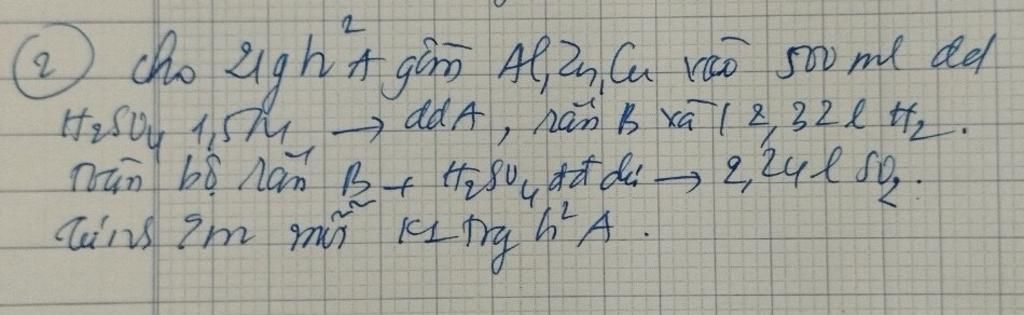 ② Cho 21g h² A gồm Al, Zn, Cu vào 500 ml dd
H₂SO₄ 1,5M → ddA, rắn B và 12,32l H₂.
Toàn bộ rắn B + H₂SO₄ đđ dư → 2,24l SO₂.
Tính %m mỗi KL trg h² A.